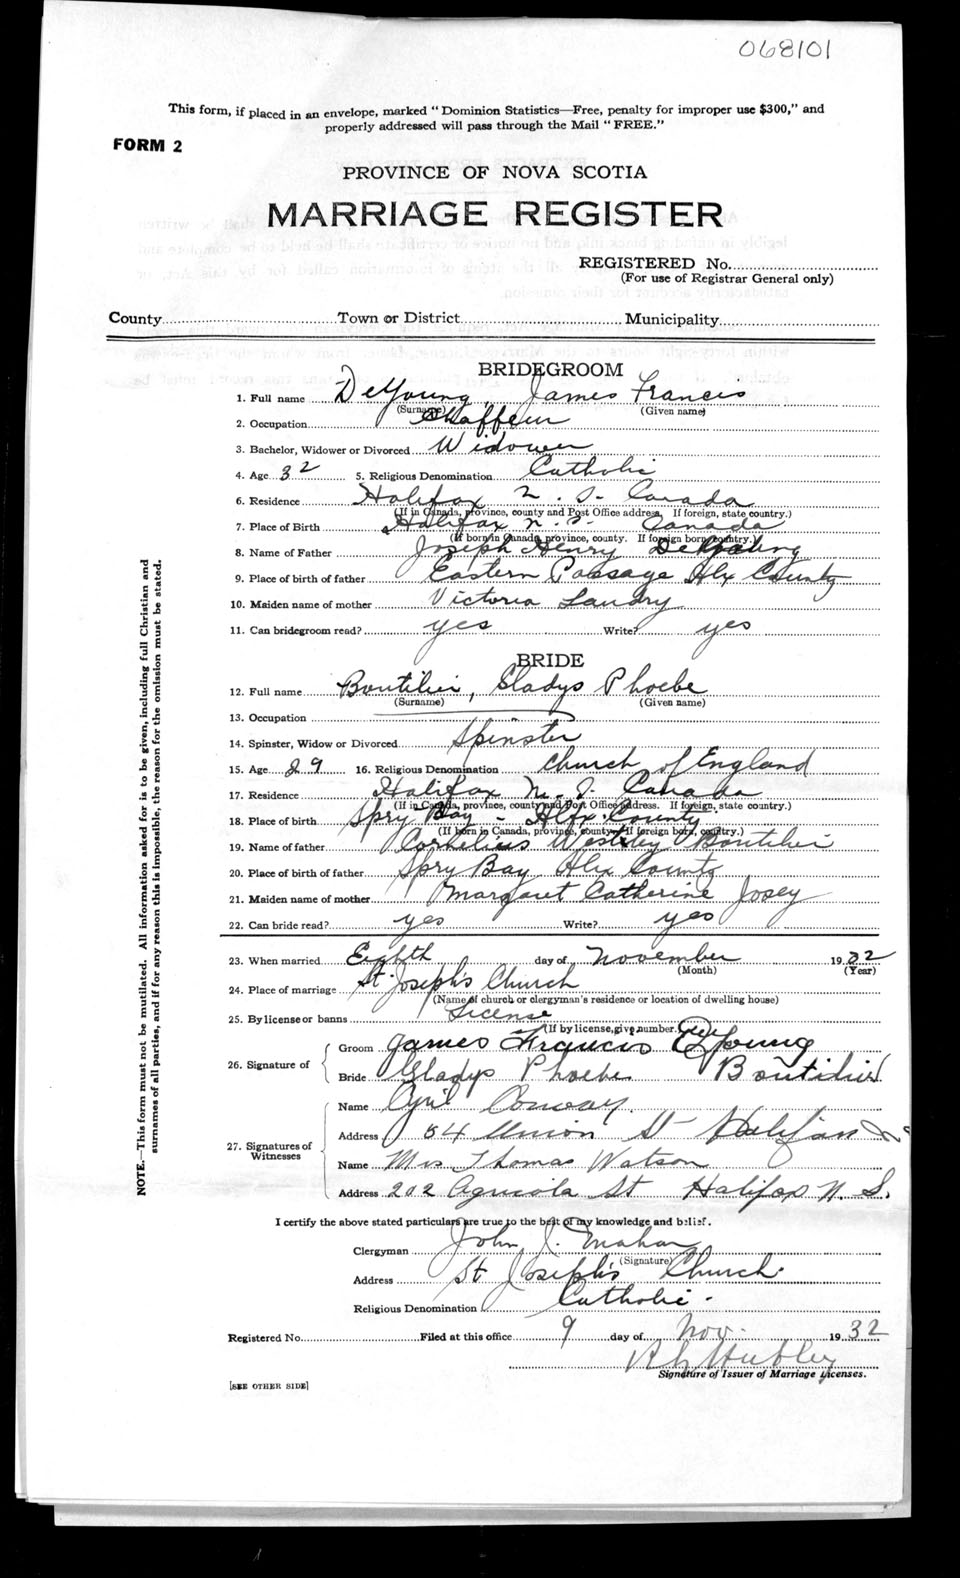 068101
This form, if placed in an envelope, marked "Dominion Statistics—Free, penalty for improper use $300," and
properly addressed will pass through the Mail "FREE."
FORM 2
PROVINCE OF NOVA SCOTIA
MARRIAGE REGISTER
REGISTERED No.
(For use of Registrar General only)
County Town or District Municipality
BRIDEGROOM
1. Full name DeYoung, James Francis
(Surname) (Given name)
2. Occupation Shaffeur
3. Bachelor, Widower or Divorced Widower
4. Age 32 5. Religious Denomination Catholic
6. Residence Halifax N. S. Canada
(If in Canada, province, county and Post Office address. If foreign, state country.)
7. Place of Birth Halifax N. S. Canada
(If born in Canada, province, county. If foreign born, country.)
8. Name of Father Joseph Henry DeYoung
9. Place of birth of father Eastern Passage Hlx County
10. Maiden name of mother Victoria Landry
11. Can bridegroom read? yes Write? yes
BRIDE
12. Full name Boutilier, Gladys Phoebe
(Surname) (Given name)
13. Occupation
14. Spinster, Widow or Divorced Spinster
15. Age 29 16. Religious Denomination Church of England
17. Residence Halifax N. S. Canada
(If in Canada, province, county and Post Office address. If foreign, state country.)
18. Place of birth Spry Bay - Hlfx. County
(If born in Canada, province, county. If foreign born, country.)
19. Name of father Cornelius Westley Boutilier
20. Place of birth of father Spry Bay Hlx County
21. Maiden name of mother Margaret Catherine Josey
22. Can bride read? yes Write? yes
23. When married Eighth day of November 1932
(Month) (Year)
24. Place of marriage St. Joseph's Church
(Name of church or clergyman's residence or location of dwelling house)
25. By license or banns License
(If by license, give number.)
26. Signature of
Groom James Francis DeYoung
Bride Gladys Phoebe Boutilier
27. Signatures of Witnesses
Name Cyril Conway
Address 54 Union St Halifax
Name Mrs Thomas Watson
Address 202 Agricola St Halifax N. S.
I certify the above stated particulars are true to the best of my knowledge and belief.
Clergyman John J. Mahar
(Signature)
Address St Joseph's Church.
Religious Denomination Catholic.
Registered No. Filed at this office 9 day of Nov. 1932
Hubley
Signature of Issuer of Marriage Licenses.
[SEE OTHER SIDE]
NOTE.—This form must not be mutilated. All information asked for is to be given, including full Christian and
surnames of all parties, and if for any reason this is impossible, the reason for the omission must be stated.